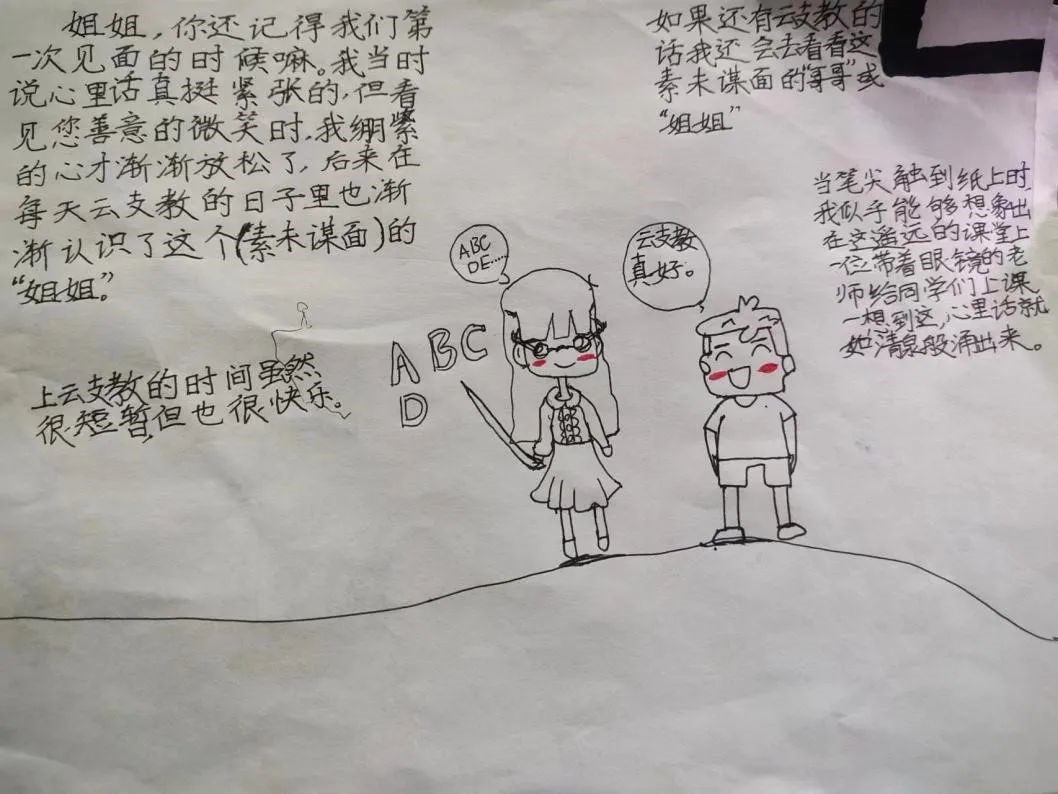 姐姐，你还记得我们第
一次见面的时候嘛。我当时
说心里话真挺紧张的，但看
见您善意的微笑时，我绷紧
的心才渐渐放松了，后来在
每天云支教的日子里也渐
渐认识了这个(素未谋面)的
“姐姐”。
上云支教的时间虽然
很短暂，但也很快乐。
ABC
DE……
A BC
D
云支教
真好。
如果还有云支教的
话我还会去看看这
素未谋面的“哥哥”或
“姐姐”
当笔尖触到纸上时，
我似乎能够想象出
在这遥远的课堂上
一位带着眼镜的老
师给同学们上课
一想到这，心里话就
如清泉般涌出来。